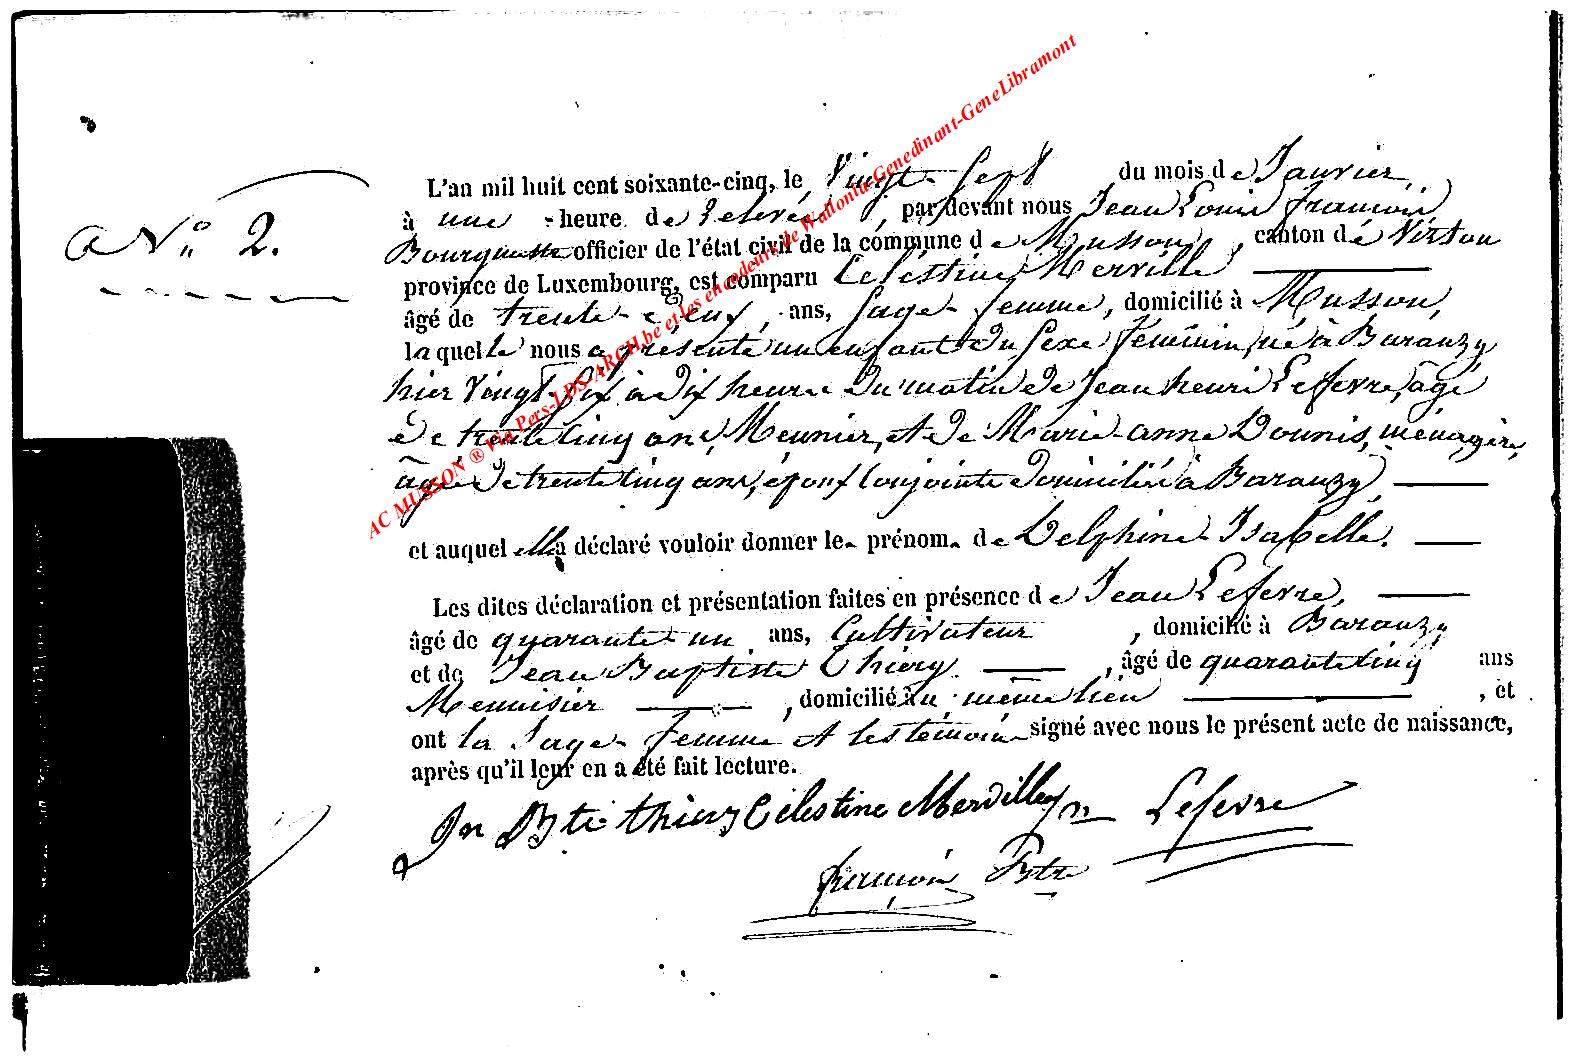 AC MUSSON ® Via Pers-LDS-ARCH.be et les encodeurs de Wallonia-Genedinant-GeneLibramont
a N° 2.
L'an mil huit cent soixante-cinq, le Vingt-Sept du mois de Janvier,
à une heure de relevée, par devant nous Jean Louis françois
officier de l'état civil de la commune de Musson, canton de Virton
province de Luxembourg, est comparu Célestine Merville
âgé de trente- ans, Sage-femme, domicilié à Musson,
laquelle nous a présenté un enfant du Sexe féminin, né à Baranzy
hier Vingt-Six à dix heures du matin de Jean henri Lefevre, âgé
de trente Cinq ans, Meunier, et de Marie-anne Dounis, ménagère,
âgée de trente Cinq ans, époux Conjoints domiciliés à Baranzy,
et auquel elle a déclaré vouloir donner le prénom de Delphine-Isabelle.
Les dites déclaration et présentation faites en présence de Jean Lefevre,
âgé de quarante-un ans, Cultivateur, domicilié à Baranzy
et de Jean Baptiste Thiery, âgé de quarante Cinq ans
Menuisier, domicilié au même lieu, et
ont la Sage-femme et les témoins signé avec nous le présent acte de naissance,
après qu'il leur en a été fait lecture.
Jn Bte thiery Célestine Merville Jn Lefevre
françois